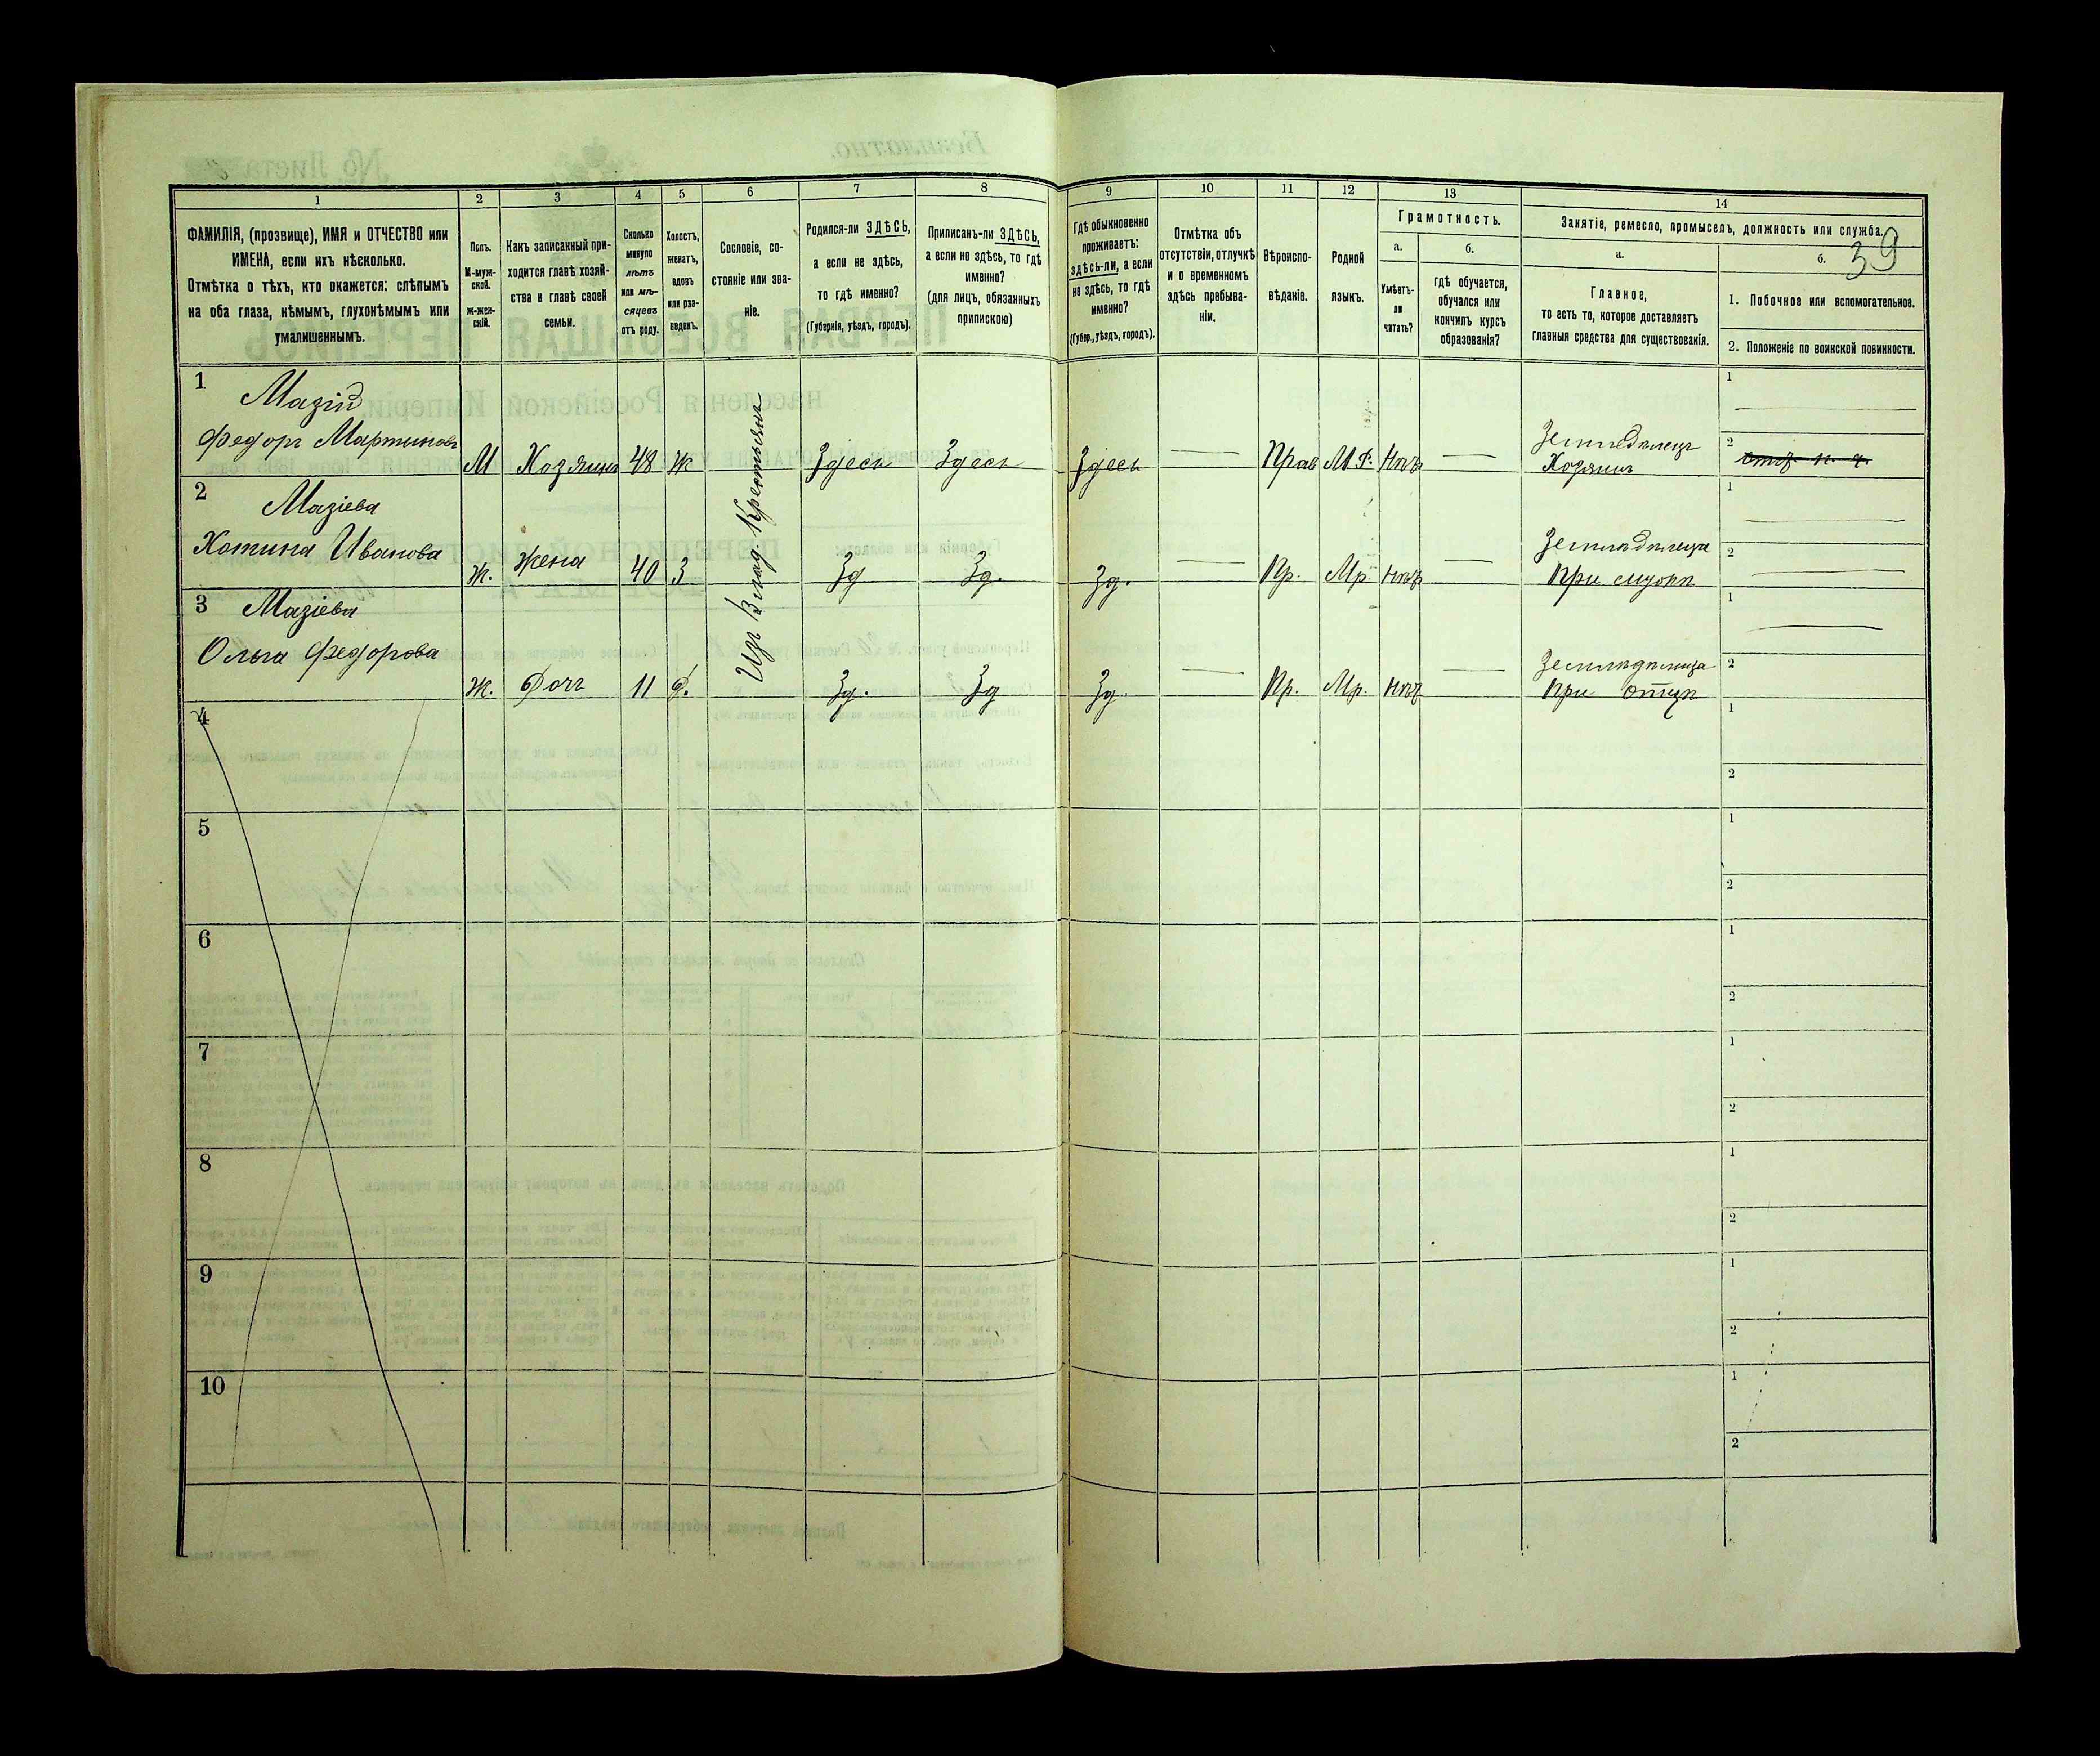 39
1 2 3 4 5 6 7 8 9 10 11 12 13 14
ФАМИЛІЯ, (прозвище), ИМЯ и ОТЧЕСТВО или
ИМЕНА, если ихъ нѣсколько.
Отмѣтка о тѣхъ, кто окажется: слѣпымъ
на оба глаза, нѣмымъ, глухонѣмымъ или
умалишеннымъ.
Полъ.
М-муж-
ской.
Ж-жен-
скій.
Какъ записанный при-
ходится главѣ хозяй-
ства и главѣ своей
семьи.
Сколько
минуло
лѣтъ
или мѣ-
сяцевъ
отъ роду.
Холостъ,
женатъ,
вдовъ
или раз-
веденъ.
Сословіе, со-
стояніе или зва-
ніе.
Родился-ли ЗДѢСЬ,
а если не здѣсь,
то гдѣ именно?
(Губернія, уѣздъ, городъ).
Приписанъ-ли ЗДѢСЬ,
а если не здѣсь, то гдѣ
именно?
(для лицъ, обязанныхъ
припискою)
Гдѣ обыкновенно
проживаетъ:
здѣсь-ли, а если
не здѣсь, то гдѣ
именно?
(Губер., уѣздъ, городъ).
Отмѣтка объ
отсутствіи, отлучкѣ
и о временномъ
здѣсь пребыва-
ніи.
Вѣроиспо-
вѣданіе.
Родной
языкъ.
Грамотность.
а.
Умѣетъ-
ли
читать?
б.
гдѣ обучается,
обучался или
кончилъ курсъ
образованія?
Занятіе, ремесло, промыселъ, должность или служба.
а.
Главное,
то есть то, которое доставляетъ
главныя средства для существованія.
б.
1. Побочное или вспомогательное.
2. Положеніе по воинской повинности.
1 Мазій
Федоръ Мартиновъ М Хозяинъ 48 Ж Здесь Здесь Здесь — Прав М.Р. Нѣтъ — Земледѣлецъ
Хозяинъ
1 —
2
Изъ Влад. Крестьянъ
2 Мазіева
Хотина Иванова Ж. Жена 40 З Зд Зд. Зд. — Пр. Мр. Нѣтъ — Земледѣлица
При мужѣ
1 —
2 —
3 Мазіева
Ольга Федорова Ж. Дочь 11 Д. Зд. Зд Зд. — Пр. Мр. Нѣтъ — Земледѣлица
При отцѣ
1 —
2
4 1
2
5 1
2
6 1
2
7 1
2
8 1
2
9 1
2
10 1
2